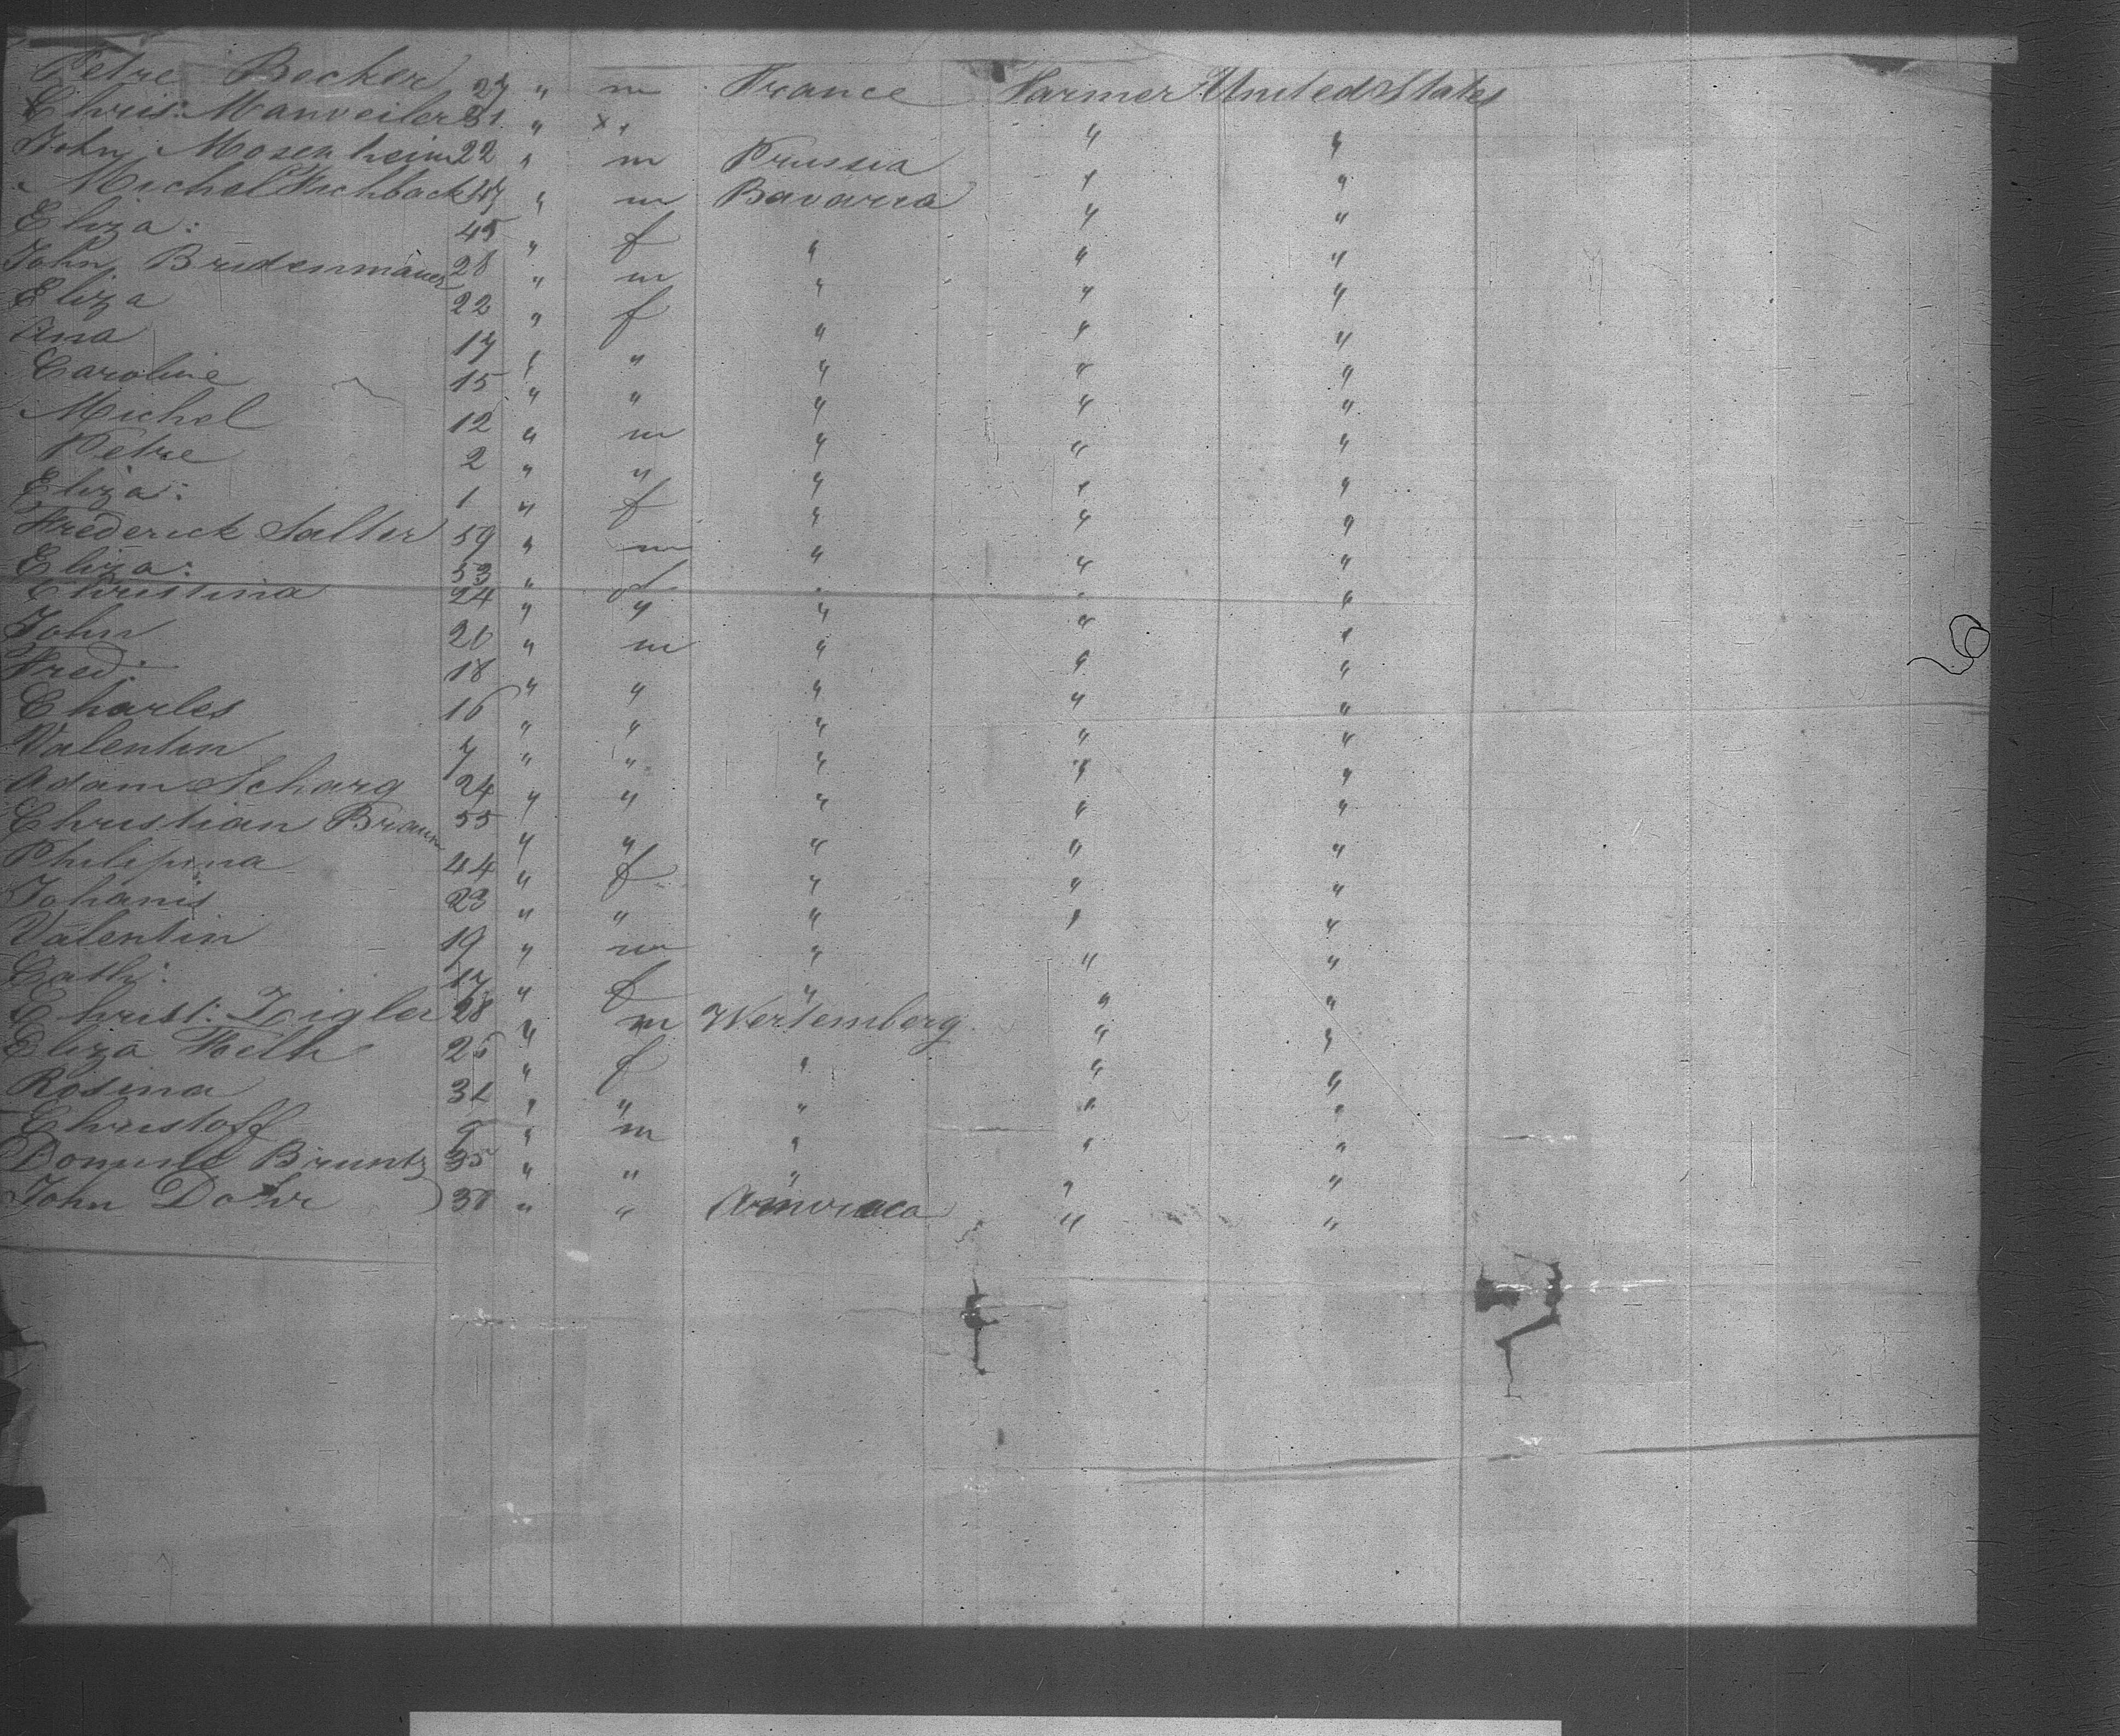 Petre Becker 27 " m France Farmer United States
Chris: Manveiler 31 " " " "
John Mosenheim 22 " m Prussia " "
Michel " m Bavaria " "
Eliza: 45 " f " " "
John Bridenmauer 28 " m " " "
Eliza 22 " f " " "
Ana 17 " " " " "
Caroline 15 " " " " "
Michel 12 " m " " "
Petre 2 " " " " "
Eliza: 1 " f " " "
Frederick Salter 59 " m " " "
Eliza: 53 " f " " "
Christina 24 " " " " "
John 20 " m " " "
Fred: 18 " " " " "
Charles 16 " " " " "
Valentin 7 " " " " "
Adam Scharg 24 " " " " "
Christian Braun 55 " " " " "
Philipina 44 " f " " "
Johanis 23 " " " " "
Valentin 19 " m " " "
Cath: 17 " f " " "
Christ: Zeigler 28 " m Wertemberg " "
Eliza 25 " f " " "
Rosina 31 " " " " "
Christoff 9 " m " " "
Bruntz 35 " " " " "
John Dohr 30 " " America " "